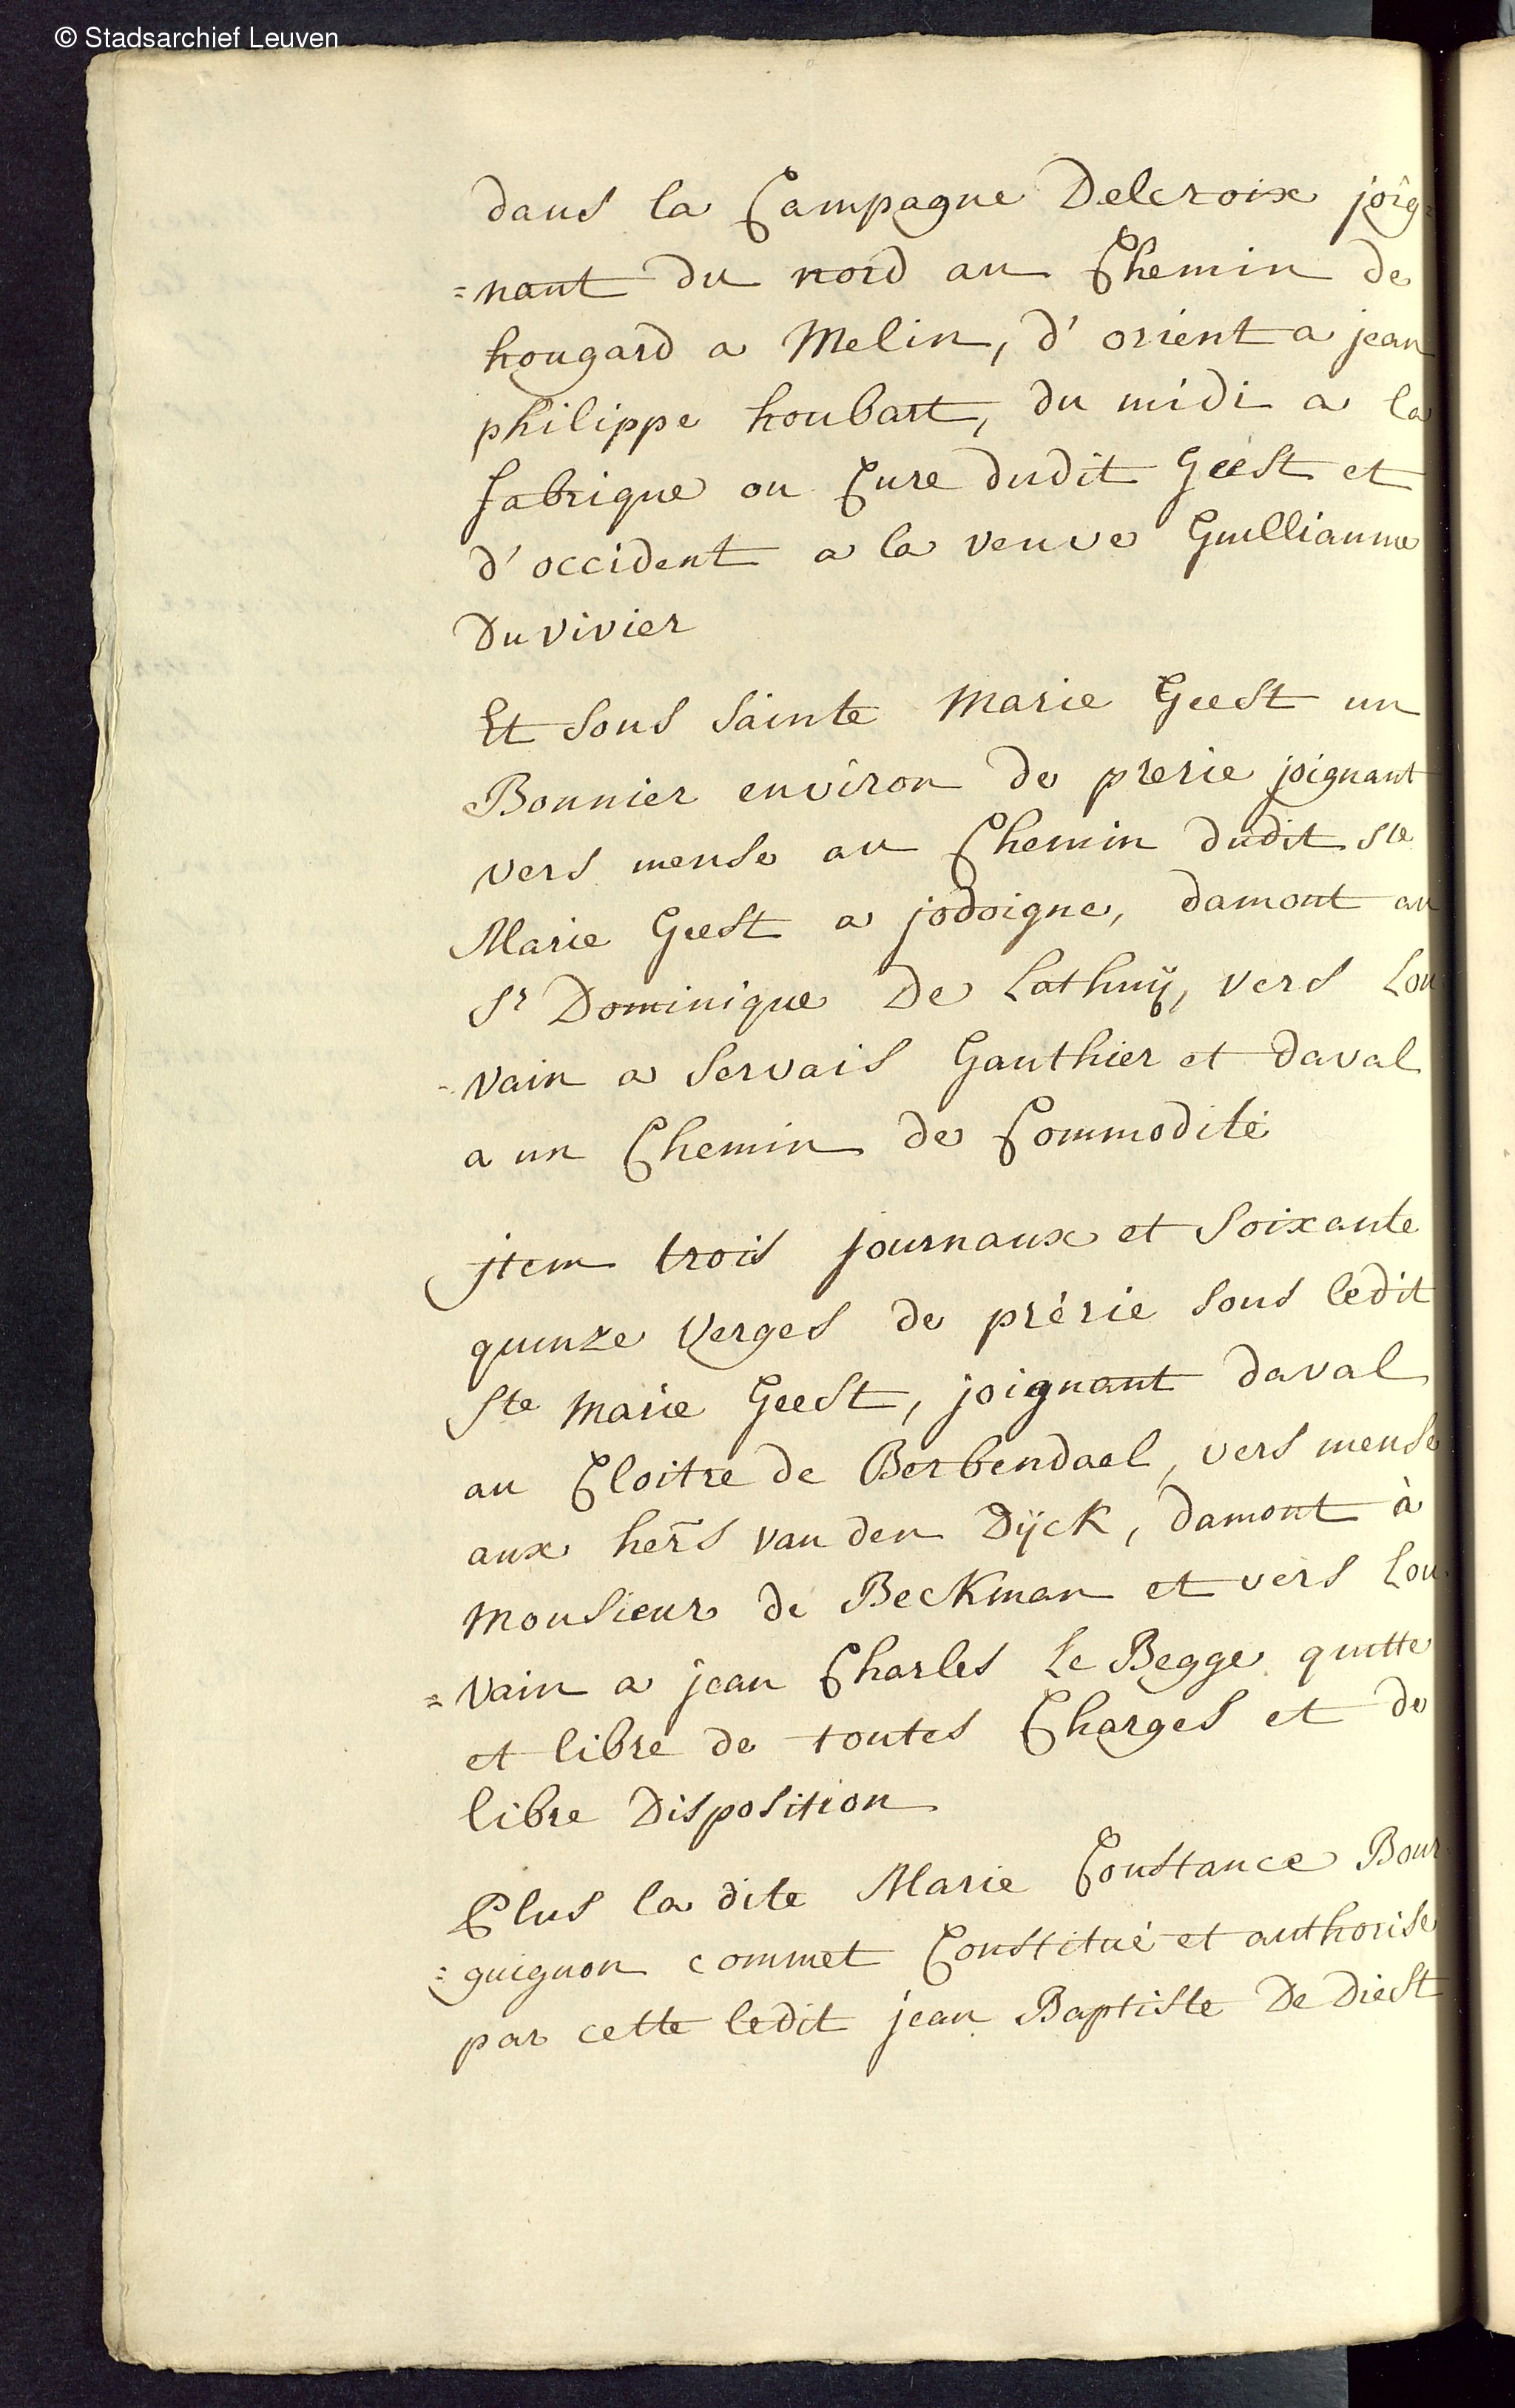 © Stadsarchief Leuven
dans la Campagne Delcroix joig=
=nant du nord au Chemin de
hougard a Melin, d'orient a jean
philippe houbart, du midi a la
fabrique ou Cure dudit Geest et
d'occident a la veuve Guillianme
Du vivier
Et sous sainte Marie Geest un
Bonnier environ de prerie joignant
vers meuse au Chemin dudit Ste
Marie Geest a jodoigne, damont au
Sr Dominique De Lathuÿ, vers Lou
-vain a servais Gauthier et daval
a un Chemin de Commodité
jtem trois journaux et soixante
quinze verges de prérie sous ledit
Ste Marie Geest, joignant daval
au Cloitre de Berbendael, vers meuse
aux hers van den Dÿck, damont à
Monsieur de Beckman et vers Lou
=vain a jean Charles Le Begge quitte
et libre de toutes Charges et de
libre Disposition
Plus la dite Marie Constance Bour
=guignon commet Constitué et authorise
par cette ledit jean Baptiste De Diest